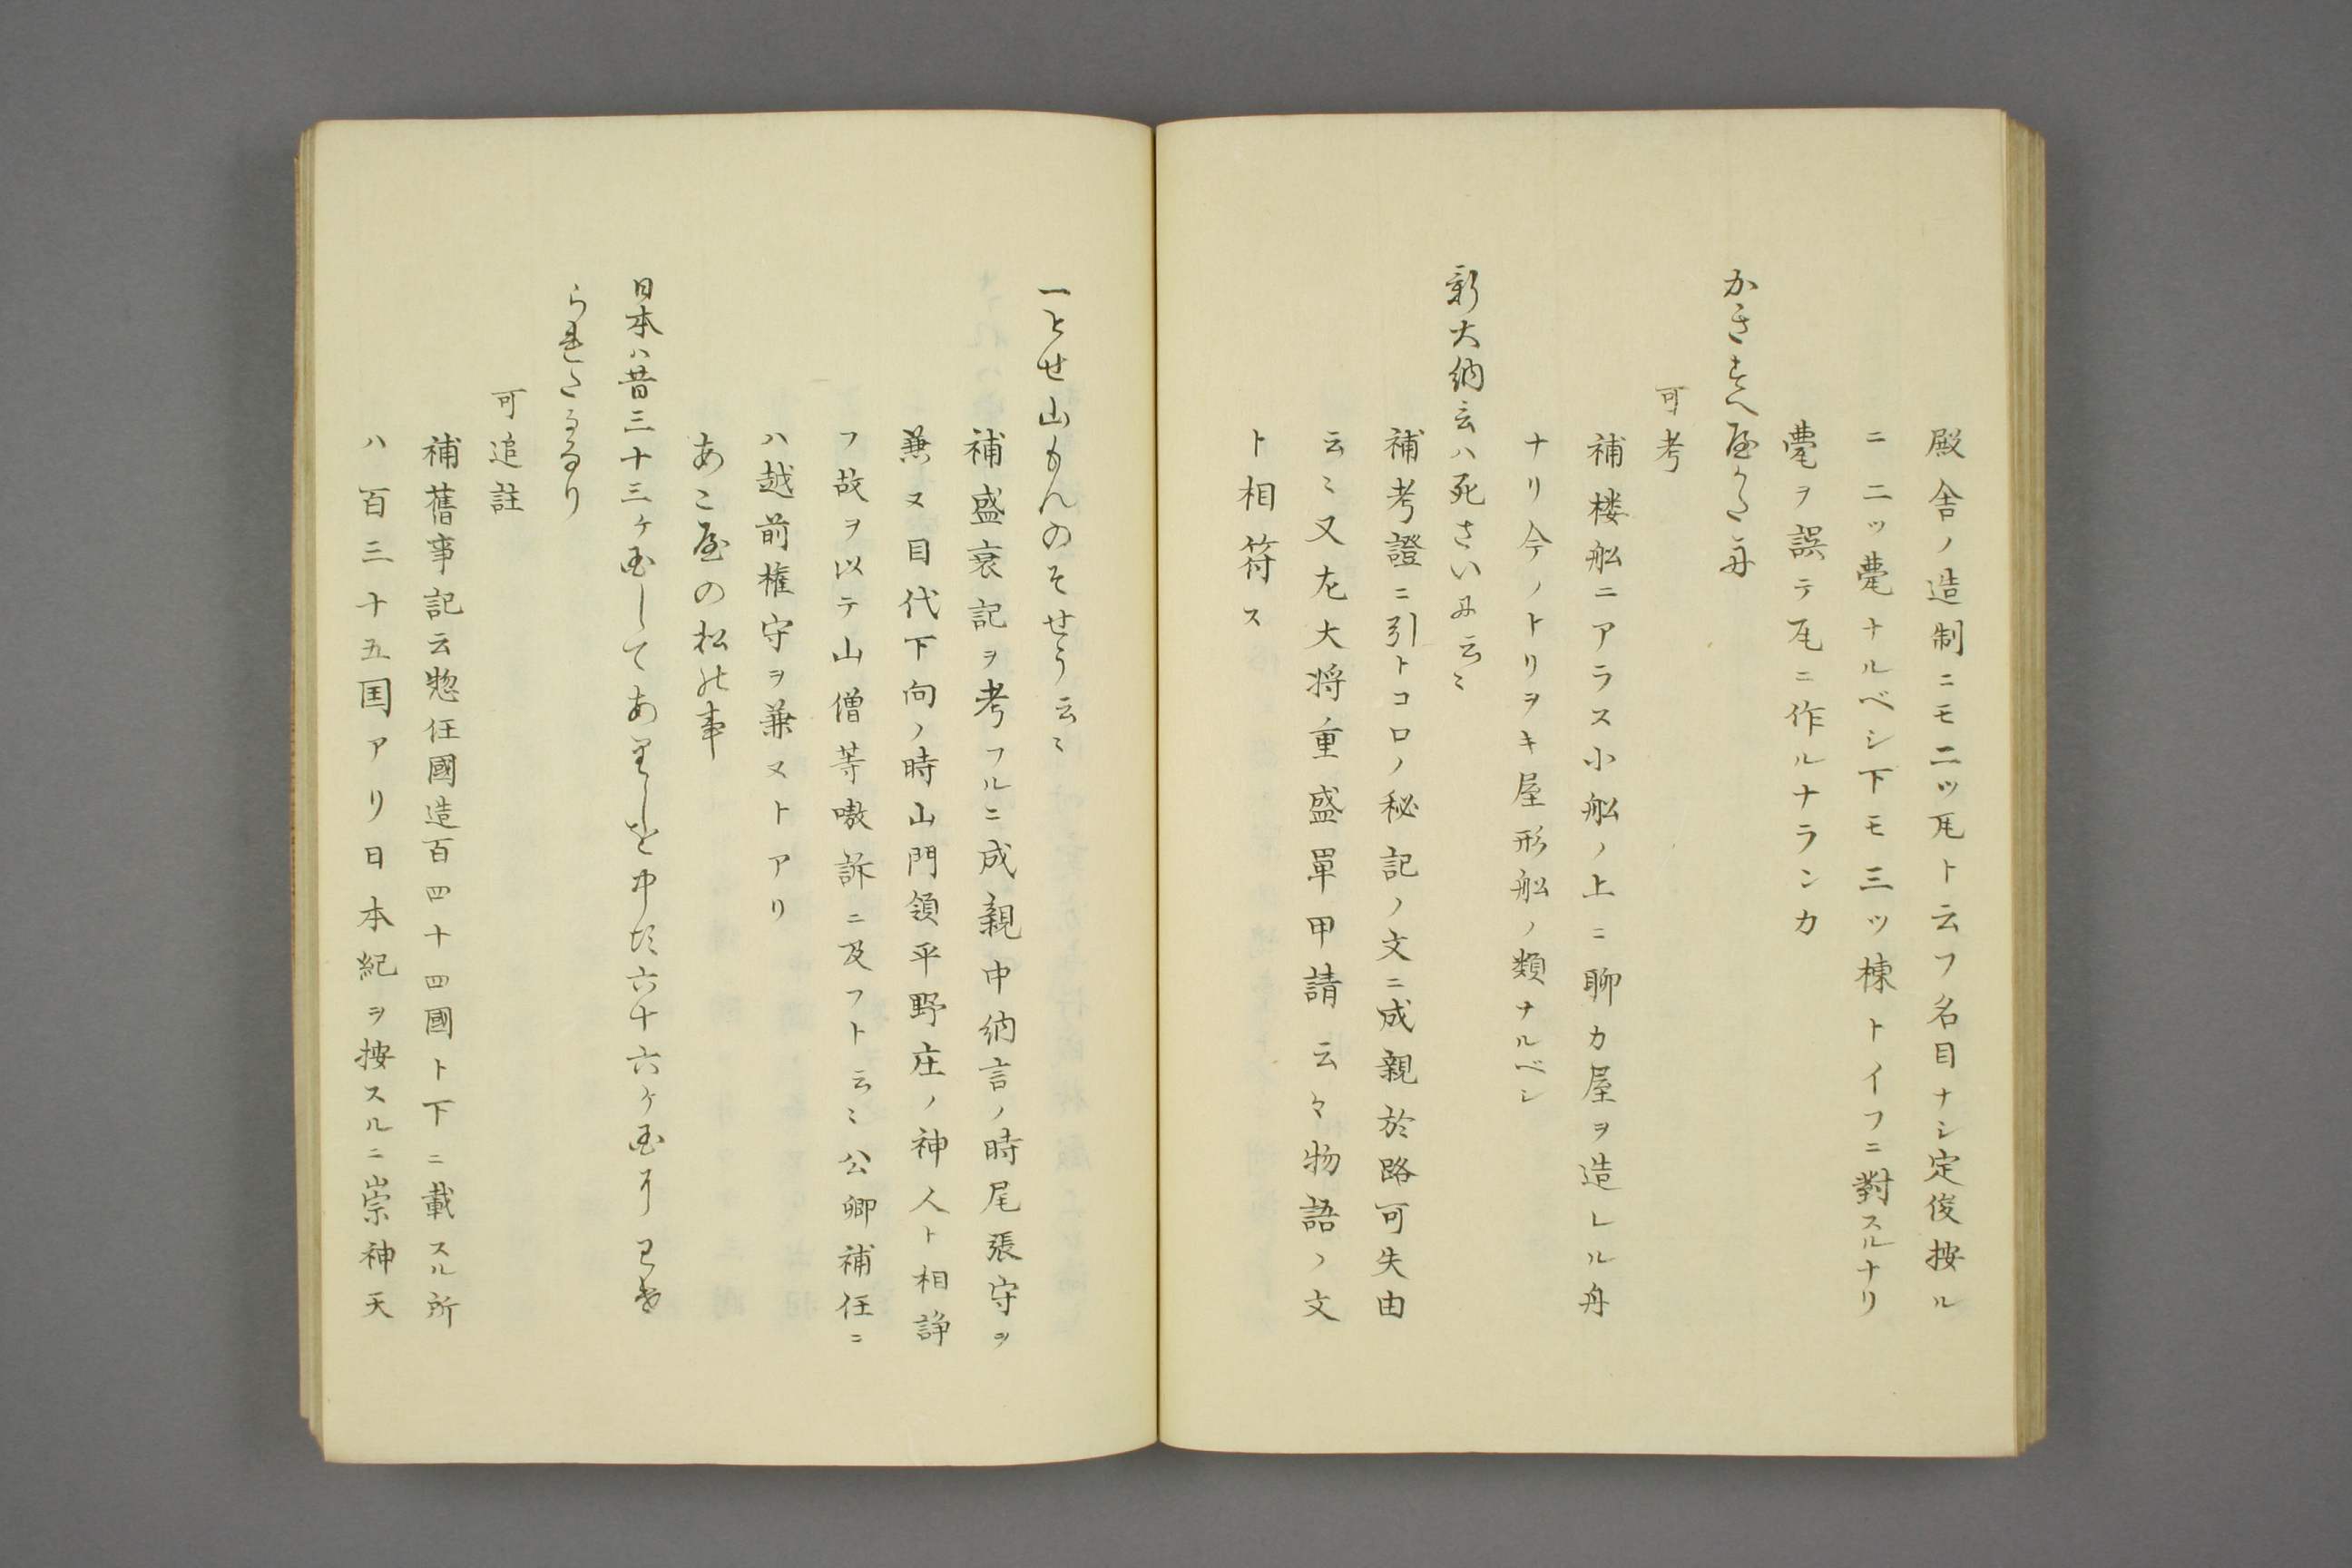 殿舎ノ造制ニモ二ッ瓦ト云フ名目ナシ定俊按ル
ニ二ッ甍ナルベシ下モ三ッ棟トイフニ對スルナリ
甍ヲ誤テ瓦ニ作ルナランカ
かきすへ屋かた舟
可考
補楼舩ニアラス小舩ノ上ニ聊カ屋ヲ造レル舟
ナリ今ノトリヲキ屋形舩ノ類ナルベシ
新大納言ハ死さいに云〻
補考證ニ引トコロノ秘記ノ文ニ成親於路可失由
云〻又左大将重盛單甲請云々物語ノ文
ト相符ス
一とせ山もんのそせう云〻
補盛衰記ヲ考フルニ成親中納言ノ時尾張守ヲ
兼又目代下向ノ時山門領平野庄ノ神人ト相諍
フ故ヲ以テ山僧等嗷訴ニ及フト云〻公卿補任ニ
ハ越前権守ヲ兼ヌトアリ
あこ屋の松の事
日本ハ昔三十三ヶ国してありしを中比六十六ヶ国に わけ
られたるなり
可追註
補舊事記云惣任國造百四十四國ト下ニ載スル所
ハ百三十五国アリ日本紀ヲ按スルニ崇神天